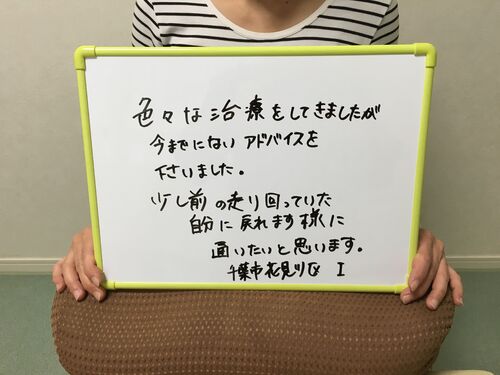 色々な治療をしてきましたが
今までにないアドバイスを
下さいました。
少し前の走り回っていた
自分に戻れます様に
通いたいと思います。
千葉市花見川区 I